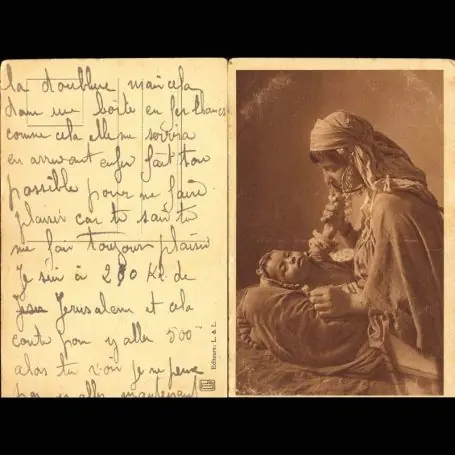 la doublure mais cela
dans une boîte en fer blanc
comme cela elle ne sorrira
en arrivant enfin fait ton
possible pour me faire
plaisir car tu sait tu
me fai toujour plaisir
Je sui à 200 Kl de
Jerusalem et cela
coute pour y allé 500
alors tu voi je ne peux
pas y allé maintenant
Editeurs: L. & L.